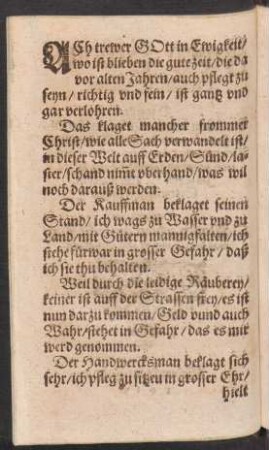 ACh trewer GOtt in Ewigkeit/
wo ist blieben die gute zeit/ die da
vor alten Jahren/ auch pflegt zu
seyn/ richtig vnd fein/ ist gantz vnd
gar verlohren.
Das klaget mancher frommer
Christ/ wie alle Sach verwandelt ist/
in dieser Welt auff Erden/ Sünd/ la-
ster/ schand nimt vberhand/ was wil
noch darauß werden.
Der Kauffman beklaget seinen
Stand/ ich wags zu Wasser vnd zu
Land/ mit Gütern mannigfalten/ ich
stehe fürwar in grosser Gefahr/ daß
ich sie thu behalten.
Weil durch die leidige Räuberey/
keiner ist auff der Strassen frey/ es ist
nun darzu kommen/ Geld vnnd auch
Wahr/ stehet in Gefahr/ das es mir
werd genommen.
Der Handwercksman beklagt sich
sehr/ ich pfleg zu sitzen in grosser Ehr/
hielt